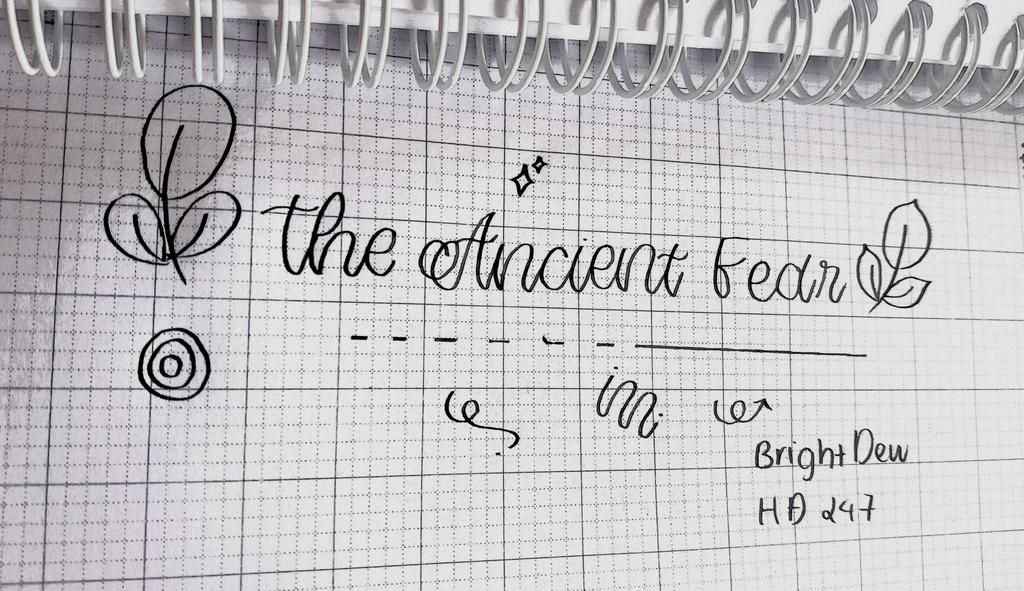 the Ancient Fear
in
Bright Dew
HD 247